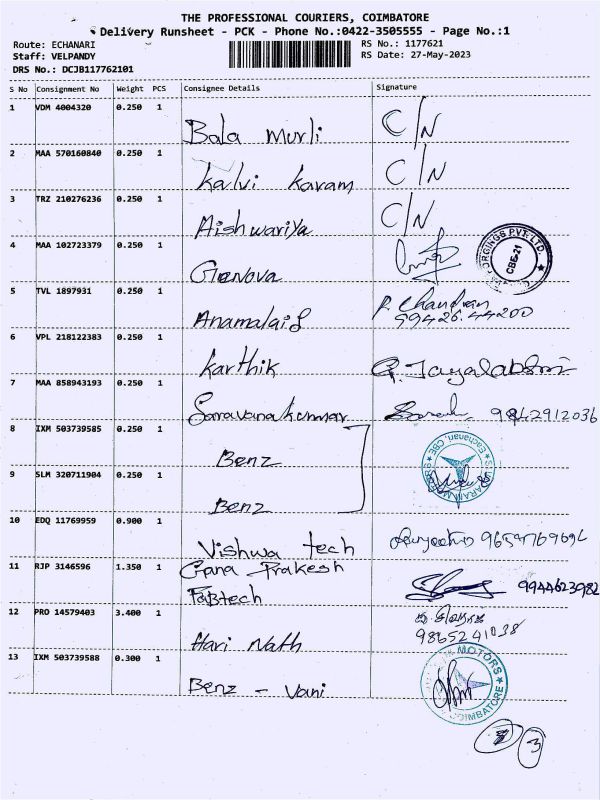 THE PROFESSIONAL COURIERS, COIMBATORE
Delivery Runsheet - PCK - Phone No.:0422-3505555 - Page No.:1
Route: ECHANARI
RS No.: 1177621
Staff: VELPANDY
RS Date: 27-May-2023
DRS No.: DCJB117762101
S No Consignment No Weight PCS Consignee Details Signature
1 VDM 4004320 0.250 1
Bala Murli C/N
2 MAA 570160840 0.250 1
Kalvi Karam C/N
3 TRZ 210276236 0.250 1
Aishwariya C/N
4 MAA 102723379 0.250 1
Genova
FORGINGS PVT. LTD.
CBE-21
5 TVL 1897931 0.250 1
Anamalais P. Chandran
99426.44200
6 VPL 218122383 0.250 1
Karthik
7 MAA 858943193 0.250 1
Saravanakumar 9842912036
8 IXM 503739585 0.250 1
Benz
Eachanari, CBE
9 SLM 320711904 0.250 1
Benz
10 EDQ 11769959 0.900 1
Vishwa tech
11 RJP 3146596 1.350 1
Gana Prakesh
Fabtech 9944623982
12 PRO 14579403 3.400 1
9865241038
Hari Nath
13 IXM 503739588 0.300 1
Benz - Vani
MOTORS
COIMBATORE
3